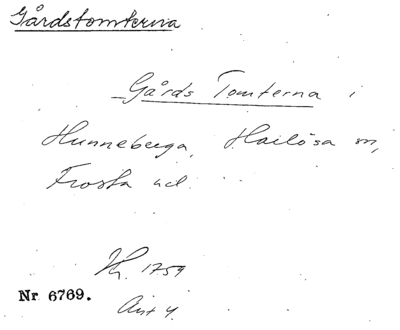 Gårdstomterna
Gårds Tomterna i
Hunneberga, Harlösa sn,
Frosta hd.
Hr. 1759
Nr 6769.
Akt 4.